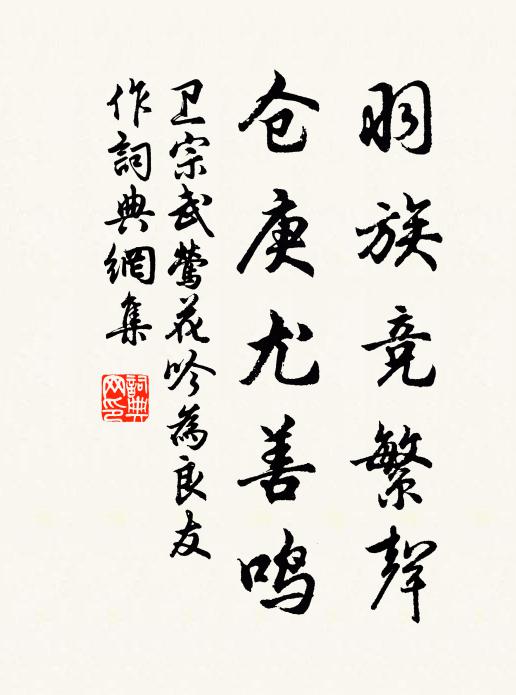 羽族竞繁聲
仓庚尤善鸣
卫宗武莺花吟為良友
作詞典網集
詞典網印